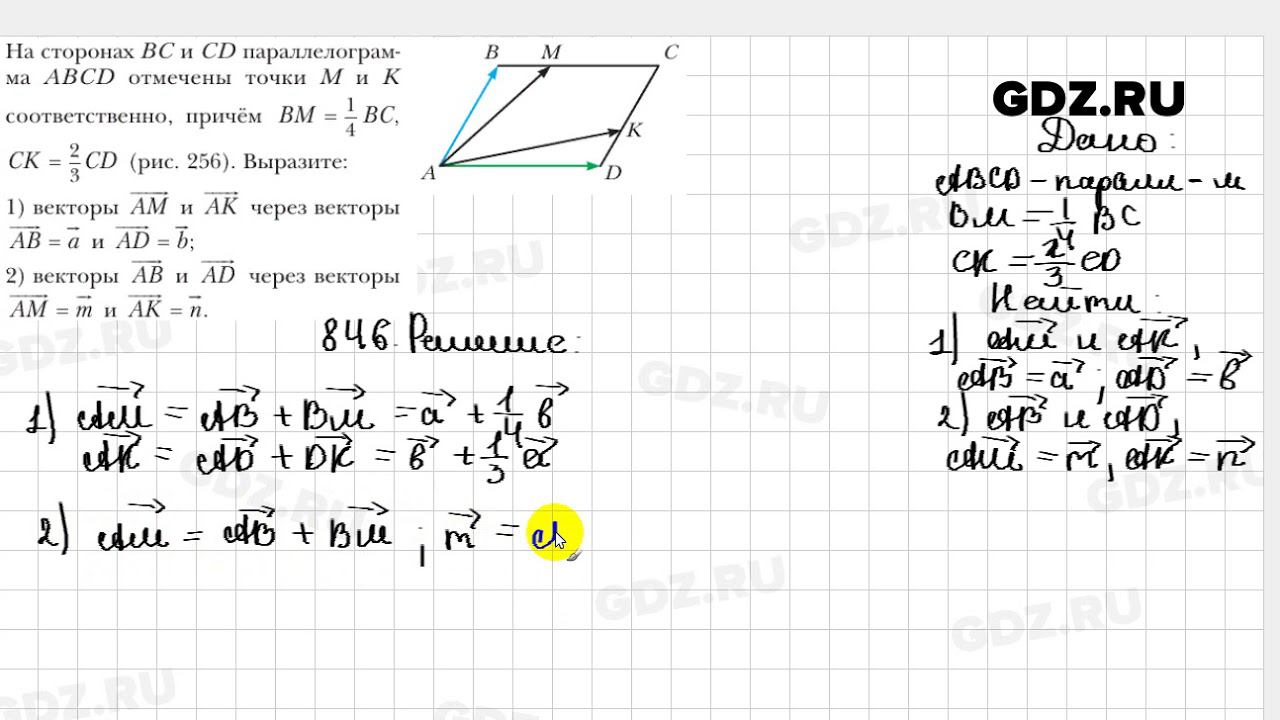 На сторонах BC и CD параллелограм-
ма ABCD отмечены точки M и K
соответственно, причём BM = 1/4 BC,
CK = 2/3 CD (рис. 256). Выразите:
1) векторы AM⃗ и AK⃗ через векторы
AB⃗ = a⃗ и AD⃗ = b⃗;
2) векторы AB⃗ и AD⃗ через векторы
AM⃗ = m⃗ и AK⃗ = n⃗.
B M C
K
A D
GDZ.RU
Дано:
ABCD – паралл – м
BM = 1/4 BC
CK = 2/3 CD
Найти:
1) AM⃗ и AK⃗,
AB⃗ = a⃗; AD⃗ = в⃗
2) AB⃗ и AD⃗,
AM⃗ = m⃗, AK⃗ = n⃗
846. Решение:
1) AM⃗ = AB⃗ + BM⃗ = a⃗ + 1/4 в⃗
AK⃗ = AD⃗ + DK⃗ = в⃗ + 1/3 a⃗
2) AM⃗ = AB⃗ + BM⃗ ; m⃗ =
GDZ.RU
GDZ.RU
GDZ.RU
GDZ.RU
GDZ.RU
GDZ.RU
GDZ.RU
GDZ.RU
GDZ.RU